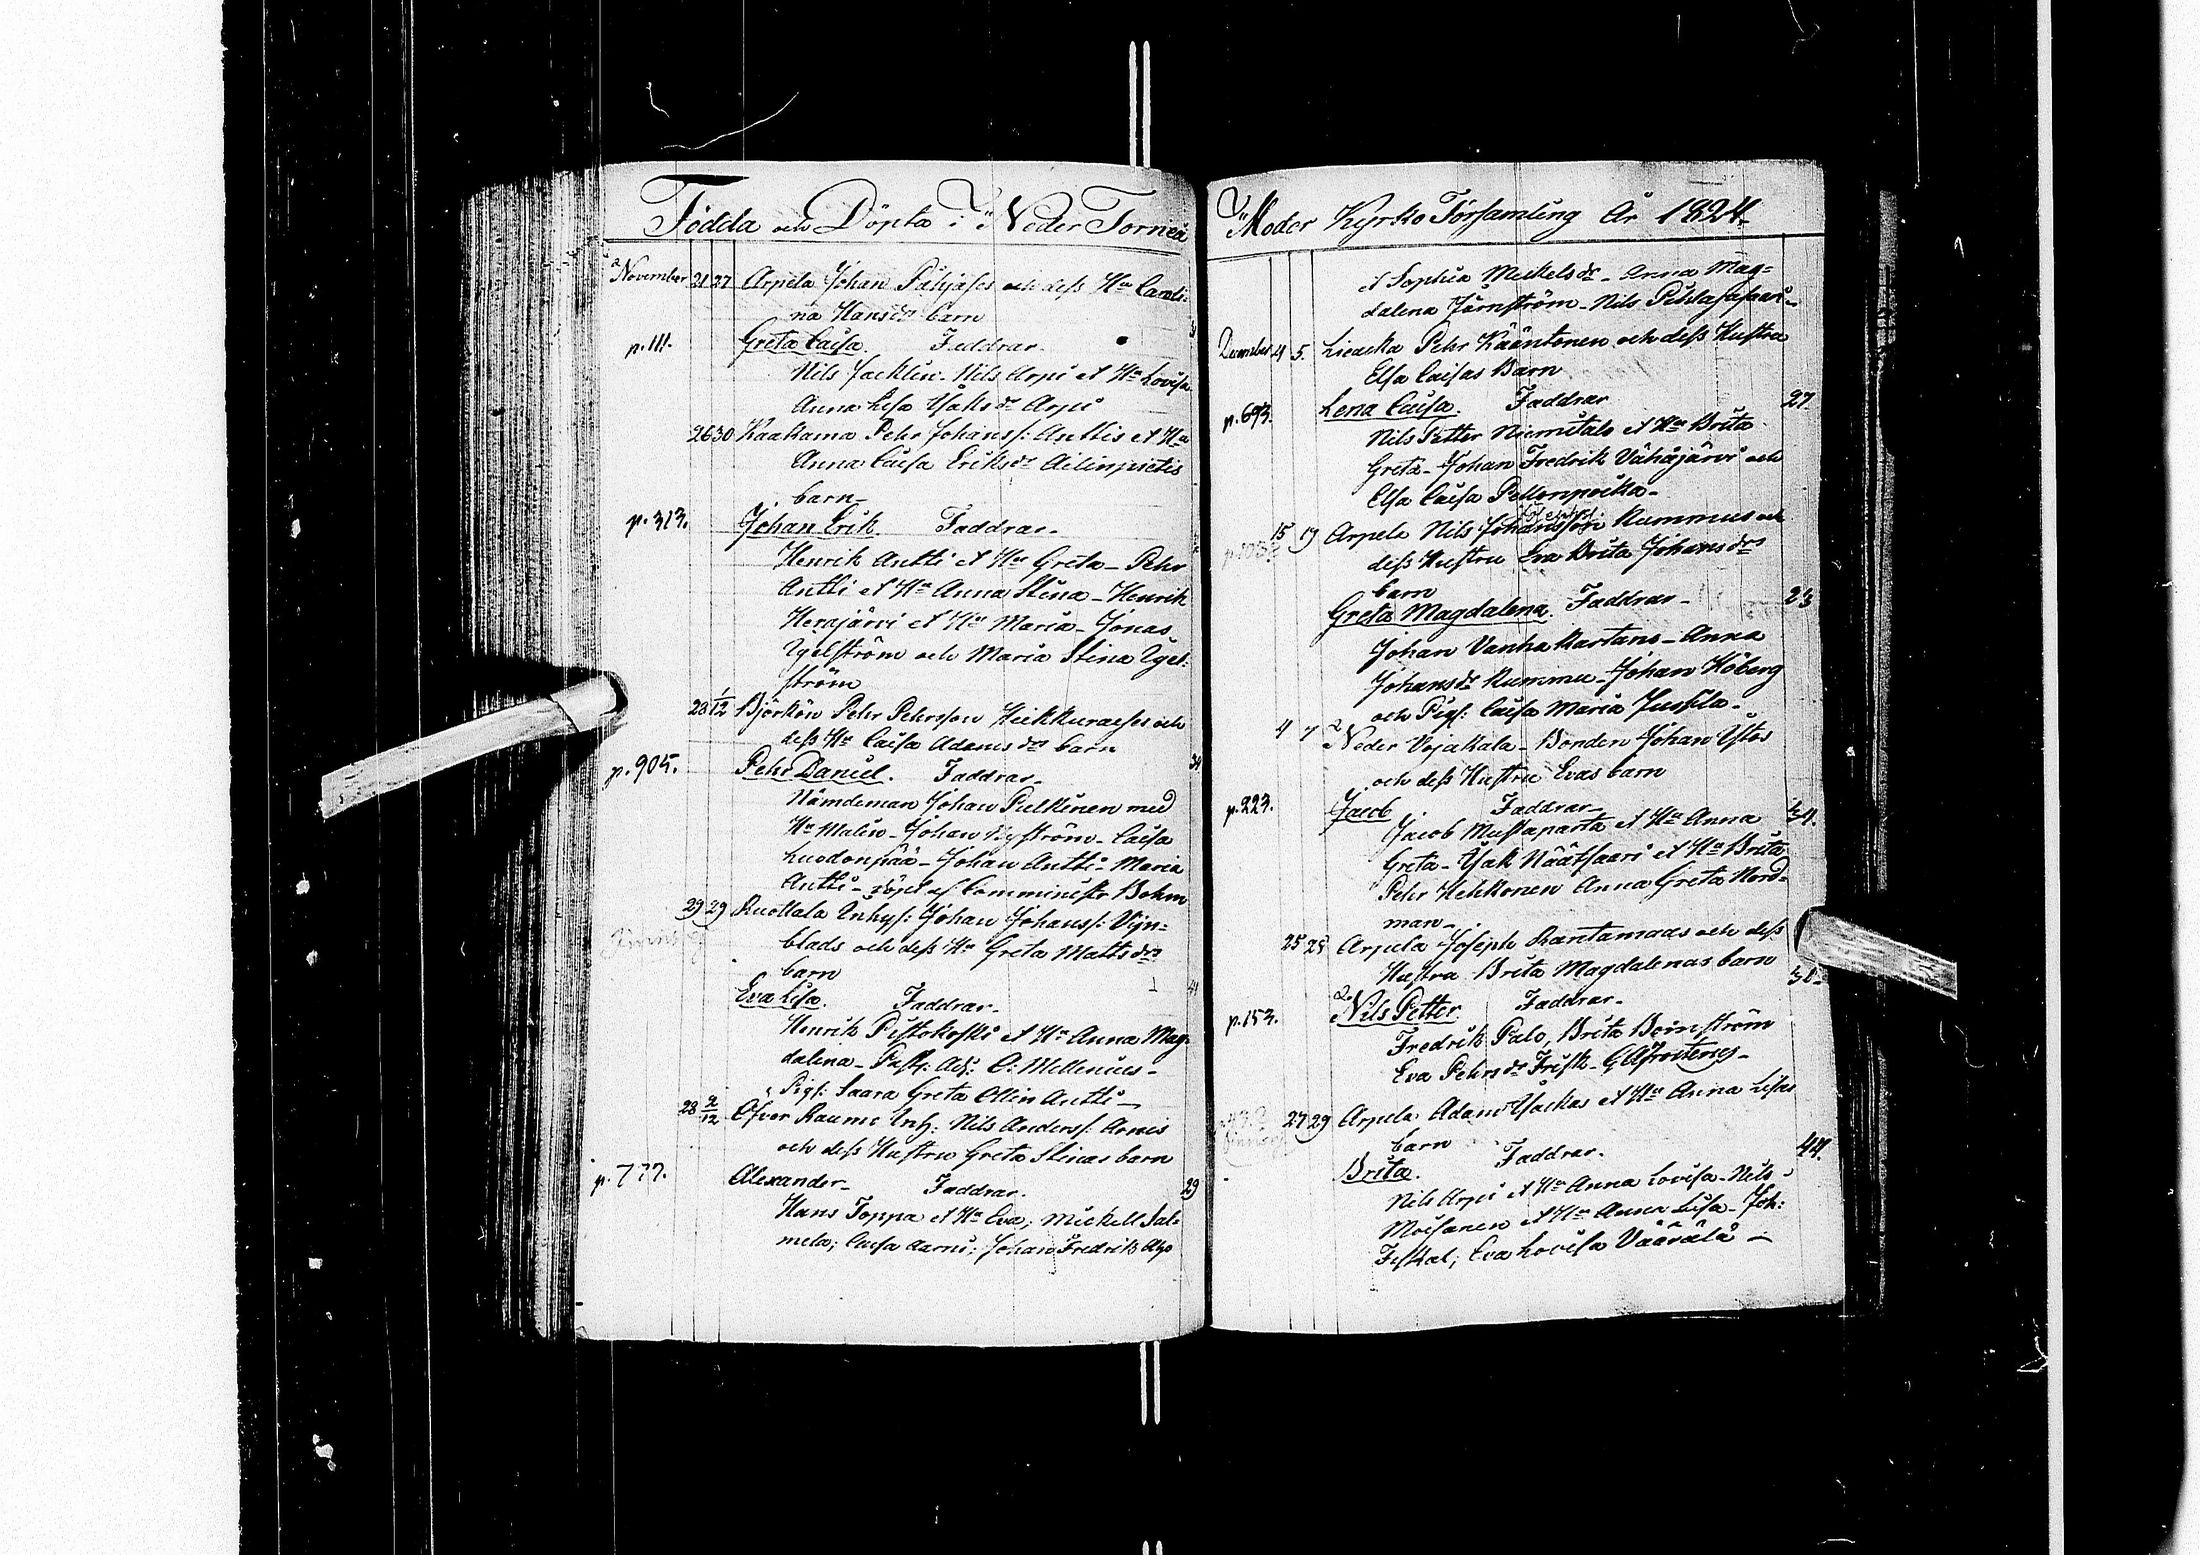 Födda och Döpta i Neder Torneå
November 21 27 Arpela Johan Pähjäses och dess Hu Caroli-
na Hansdr barn
p.111. Greta Caisa. Faddrar.
Nils Jacklin. Nils Arpi et Hu Lovisa
Anna Lisa Isaksdr Arpi
26 30 Kaakama Pehr Johanss: Anttis et Hu
Anna Caisa Eriksdr Ailinpietis
barn
p.313. Johan Erik. Faddrar
Henrik Antti et Hu Greta - Pehr
Antti et Hu Anna Stina - Henrik
Herajärvi et Hu Maria - Jonas
Igelström och Maria Stina Igel-
ström
28 1/12 Björkön Pehr Pehrsson Keikkuraeses och
dess Hu Caisa Adamsdrs barn
p.905. Pehr Daniel. Faddrar 34
Nämdeman Johan Pulkinen med
Hu Malin - Johan Nyström - Caisa
Luodonpää - Johan Antti - Maria
Antti - döpt af Comminister Bohm
29 29 Ruottala Inhys: Johan Johanss: Vign-
blads och dess Hu Greta Mattsdrs
barn
Eva Lisa. Faddrar. 44
Henrik Pistokoski et Hu Anna Mag-
dalena - Past: Adj: O: Mellenius -
Pigs: Saara Greta Ollin Antti -
28 2/12 Öfver Raumo Inh: Nils Anderss: Arnis
och dess Hustru Greta Stinas barn
p.777. Alexander - Faddrar. 29
Hans Toppa et Hu Eva; Mickell Sal-
mela; Caisa Aarni; Johan Fredrik Alzo
Moder Kyrko Församling År 1824.
et Sophia Mickelsdr - Anna Mag-
dalena Järnström - Nils
December 4 5. Liedacka Pehr Kääntönen och dess Hustru
Elsa Caisas Barn
p.693. Lena Caisa. Faddrar 27
Nils Petter Niemitalo et Hu Brita
Greta - Johan Fredrik Vähäjärvi och
Elsa Caisa Pellonpoika -
15 19 Arpela Nils Johansson Kummus och
dess Hustru Eva Brita Johansdrs
barn
Greta Magdalena. Faddrar - 23
Johan Vanhakartano - Anna
Johansdr Kummu - Johan Höberg
och Pigs: Caisa Maria Jussila -
4 7 Neder Vojakala - Bonden Johan Ystos
och dess Hustru Evas barn
p.223. Jacob Faddrar 34.
Jacob Mustaparta et Hu Anna
Greta - Isak Näätsaari et Hu Brita
Pehr Hekkonen Anna Greta Nord-
man -
25 25 Arpela Joseph Rantamaas och dess
Hustru Brita Magdalenas barn
p.153. Nils Petter. Faddrar - 31
Fredrik Palo, Brita Boinström
Eva Pehrsdr Frisk -
27 29 Arpela Adam Isackas et Hu Anna Lisas
barn
Brita. Faddrar. 44.
Nils Arpi et Hu Anna Lovisa - Nils
Moisanen et Hu Anna Lisa - Joh:
Fiskal; Eva Lovisa Väärälä -